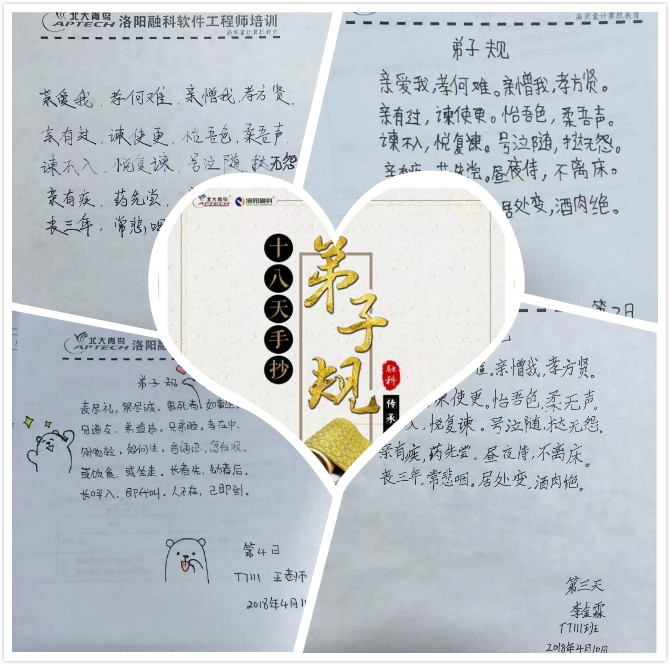 北大青鸟
APTECH 洛阳融科软件工程师培训
高质量计算机教育
亲爱我,孝何难,亲憎我,孝方贤.
亲有过,谏使更,怡吾色,柔吾声
谏不入,悦复谏,号泣随,挞无怨
亲有疾,药先尝,
丧三年,常悲咽
高质量计算机教育
弟子规
亲爱我,孝何难。亲憎我,孝方贤。
亲有过,谏使更。怡吾色,柔吾声。
谏不入,悦复谏。号泣随,挞无怨。
药先尝。昼夜侍,不离床。
居处变,酒肉绝。
第2日
北大青鸟
APTECH
洛阳融科
十八天手抄
弟子规
融科
传承
北大青鸟
APTECH 洛阳融科
弟子规
丧尽礼,祭尽诚。事死者,如事生。
兄道友,弟道恭。兄弟睦,孝在中。
财物轻,怨何生。言语忍,忿自泯。
或饮食,或坐走。长者先,幼者后。
长呼人,即代叫。人不在,己即到。
第4日
T7111 王老师
2018年4月11
亲憎我,孝方贤。
谏使更。怡吾色,柔无声。
入,悦复谏。号泣随,挞无怨。
亲有疾,药先尝。昼夜侍,不离床。
丧三年,常悲咽。居处变,酒肉绝。
第三天
李金霖
T7111班
2018年4月10日